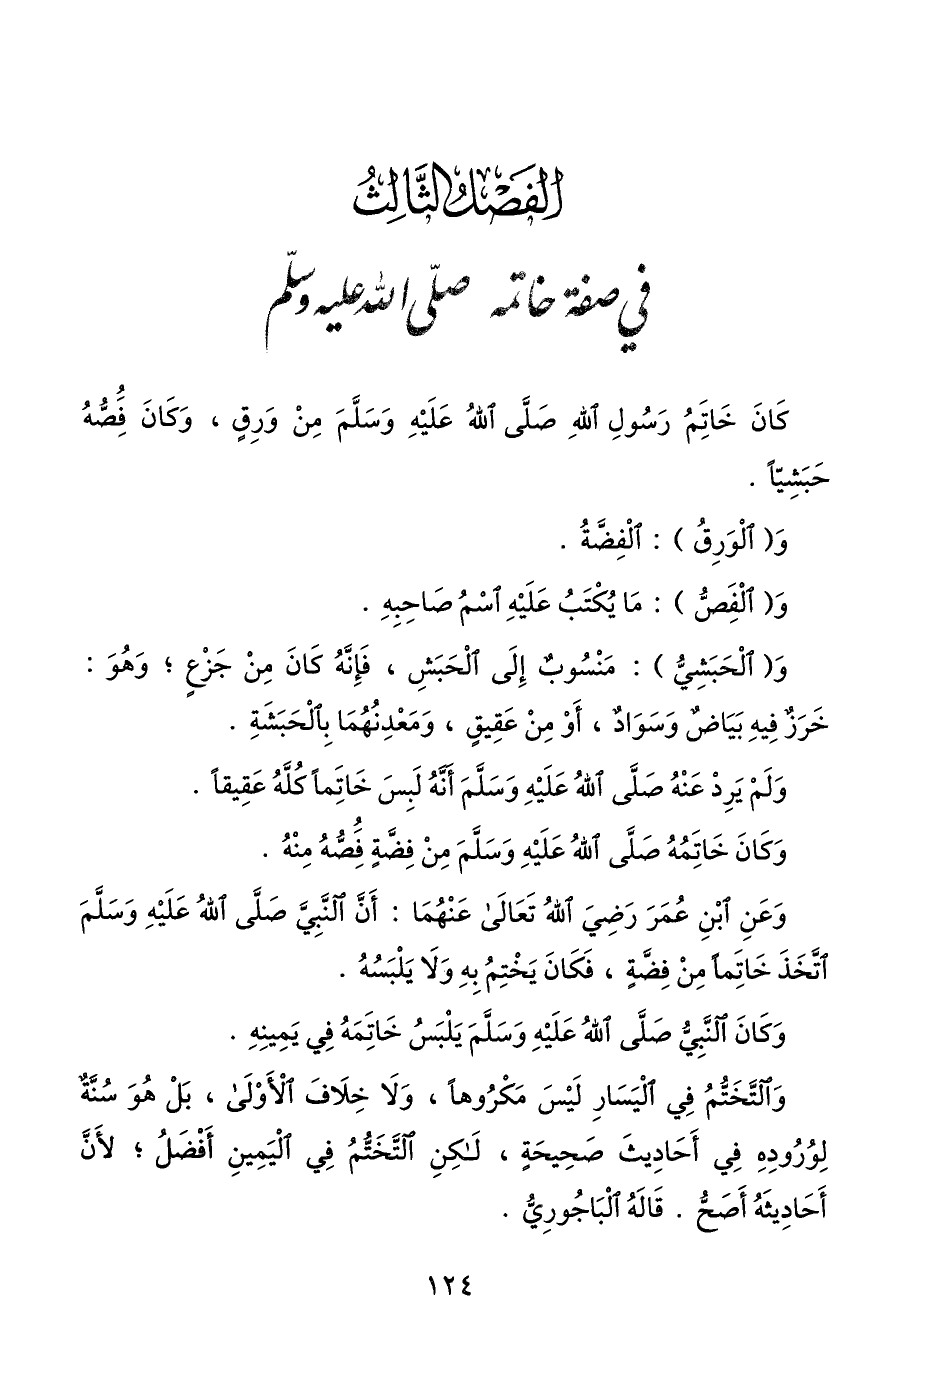 الفَصْلُ الثَّالِثُ
في صفة خاتمه صلّى الله عليه وسلّم
كَانَ خَاتَِمُ رَسُولِ ٱللهِ صَلَّى ٱللهُ عَلَيْهِ وَسَلَّمَ مِنْ وَرِقٍ ، وَكَانَ فَُِصُّهُ
حَبَشِيّاً .
وَ( ٱلْوَرِقُ ) : ٱلْفِضَّةُ .
وَ( ٱلْفَِصُّ ) : مَا يُكْتَبُ عَلَيْهِ ٱسْمُ صَاحِبِهِ .
وَ( ٱلْحَبَشِيُّ ) : مَنْسُوبٌ إِلَى ٱلْحَبَشِ ، فَإِنَّهُ كَانَ مِنْ جَزْعٍ ؛ وَهُوَ :
خَرَزٌ فِيهِ بَيَاضٌ وَسَوَادٌ ، أَوْ مِنْ عَقِيقٍ ، وَمَعْدِنُهُمَا بِٱلْحَبَشَةِ .
وَلَمْ يَرِدْ عَنْهُ صَلَّى ٱللهُ عَلَيْهِ وَسَلَّمَ أَنَّهُ لَبِسَ خَاتَِماً كُلَّهُ عَقِيقاً .
وَكَانَ خَاتَِمُهُ صَلَّى ٱللهُ عَلَيْهِ وَسَلَّمَ مِنْ فِضَّةٍ فَُِصُّهُ مِنْهُ .
وَعَنِ ٱبْنِ عُمَرَ رَضِيَ ٱللهُ تَعَالَىٰ عَنْهُمَا : أَنَّ ٱلنَّبِيَّ صَلَّى ٱللهُ عَلَيْهِ وَسَلَّمَ
ٱتَّخَذَ خَاتَِماً مِنْ فِضَّةٍ ، فَكَانَ يَخْتِمُ بِهِ وَلَا يَلْبَسُهُ .
وَكَانَ ٱلنَّبِيُّ صَلَّى ٱللهُ عَلَيْهِ وَسَلَّمَ يَلْبَسُ خَاتَِمَهُ فِي يَمِينِهِ .
وَٱلتَّخَتُّمُ فِي ٱلْيَسَارِ لَيْسَ مَكْرُوهاً ، وَلَا خِلَافَ ٱلْأَوْلَىٰ ، بَلْ هُوَ سُنَّةٌ
لِوُرُودِهِ فِي أَحَادِيثَ صَحِيحَةٍ ، لَـٰكِنِ ٱلتَّخَتُّمُ فِي ٱلْيَمِينِ أَفْضَلُ ؛ لأَنَّ
أَحَادِيثَهُ أَصَحُّ . قَالَهُ ٱلْبَاجُورِيُّ .
١٢٤